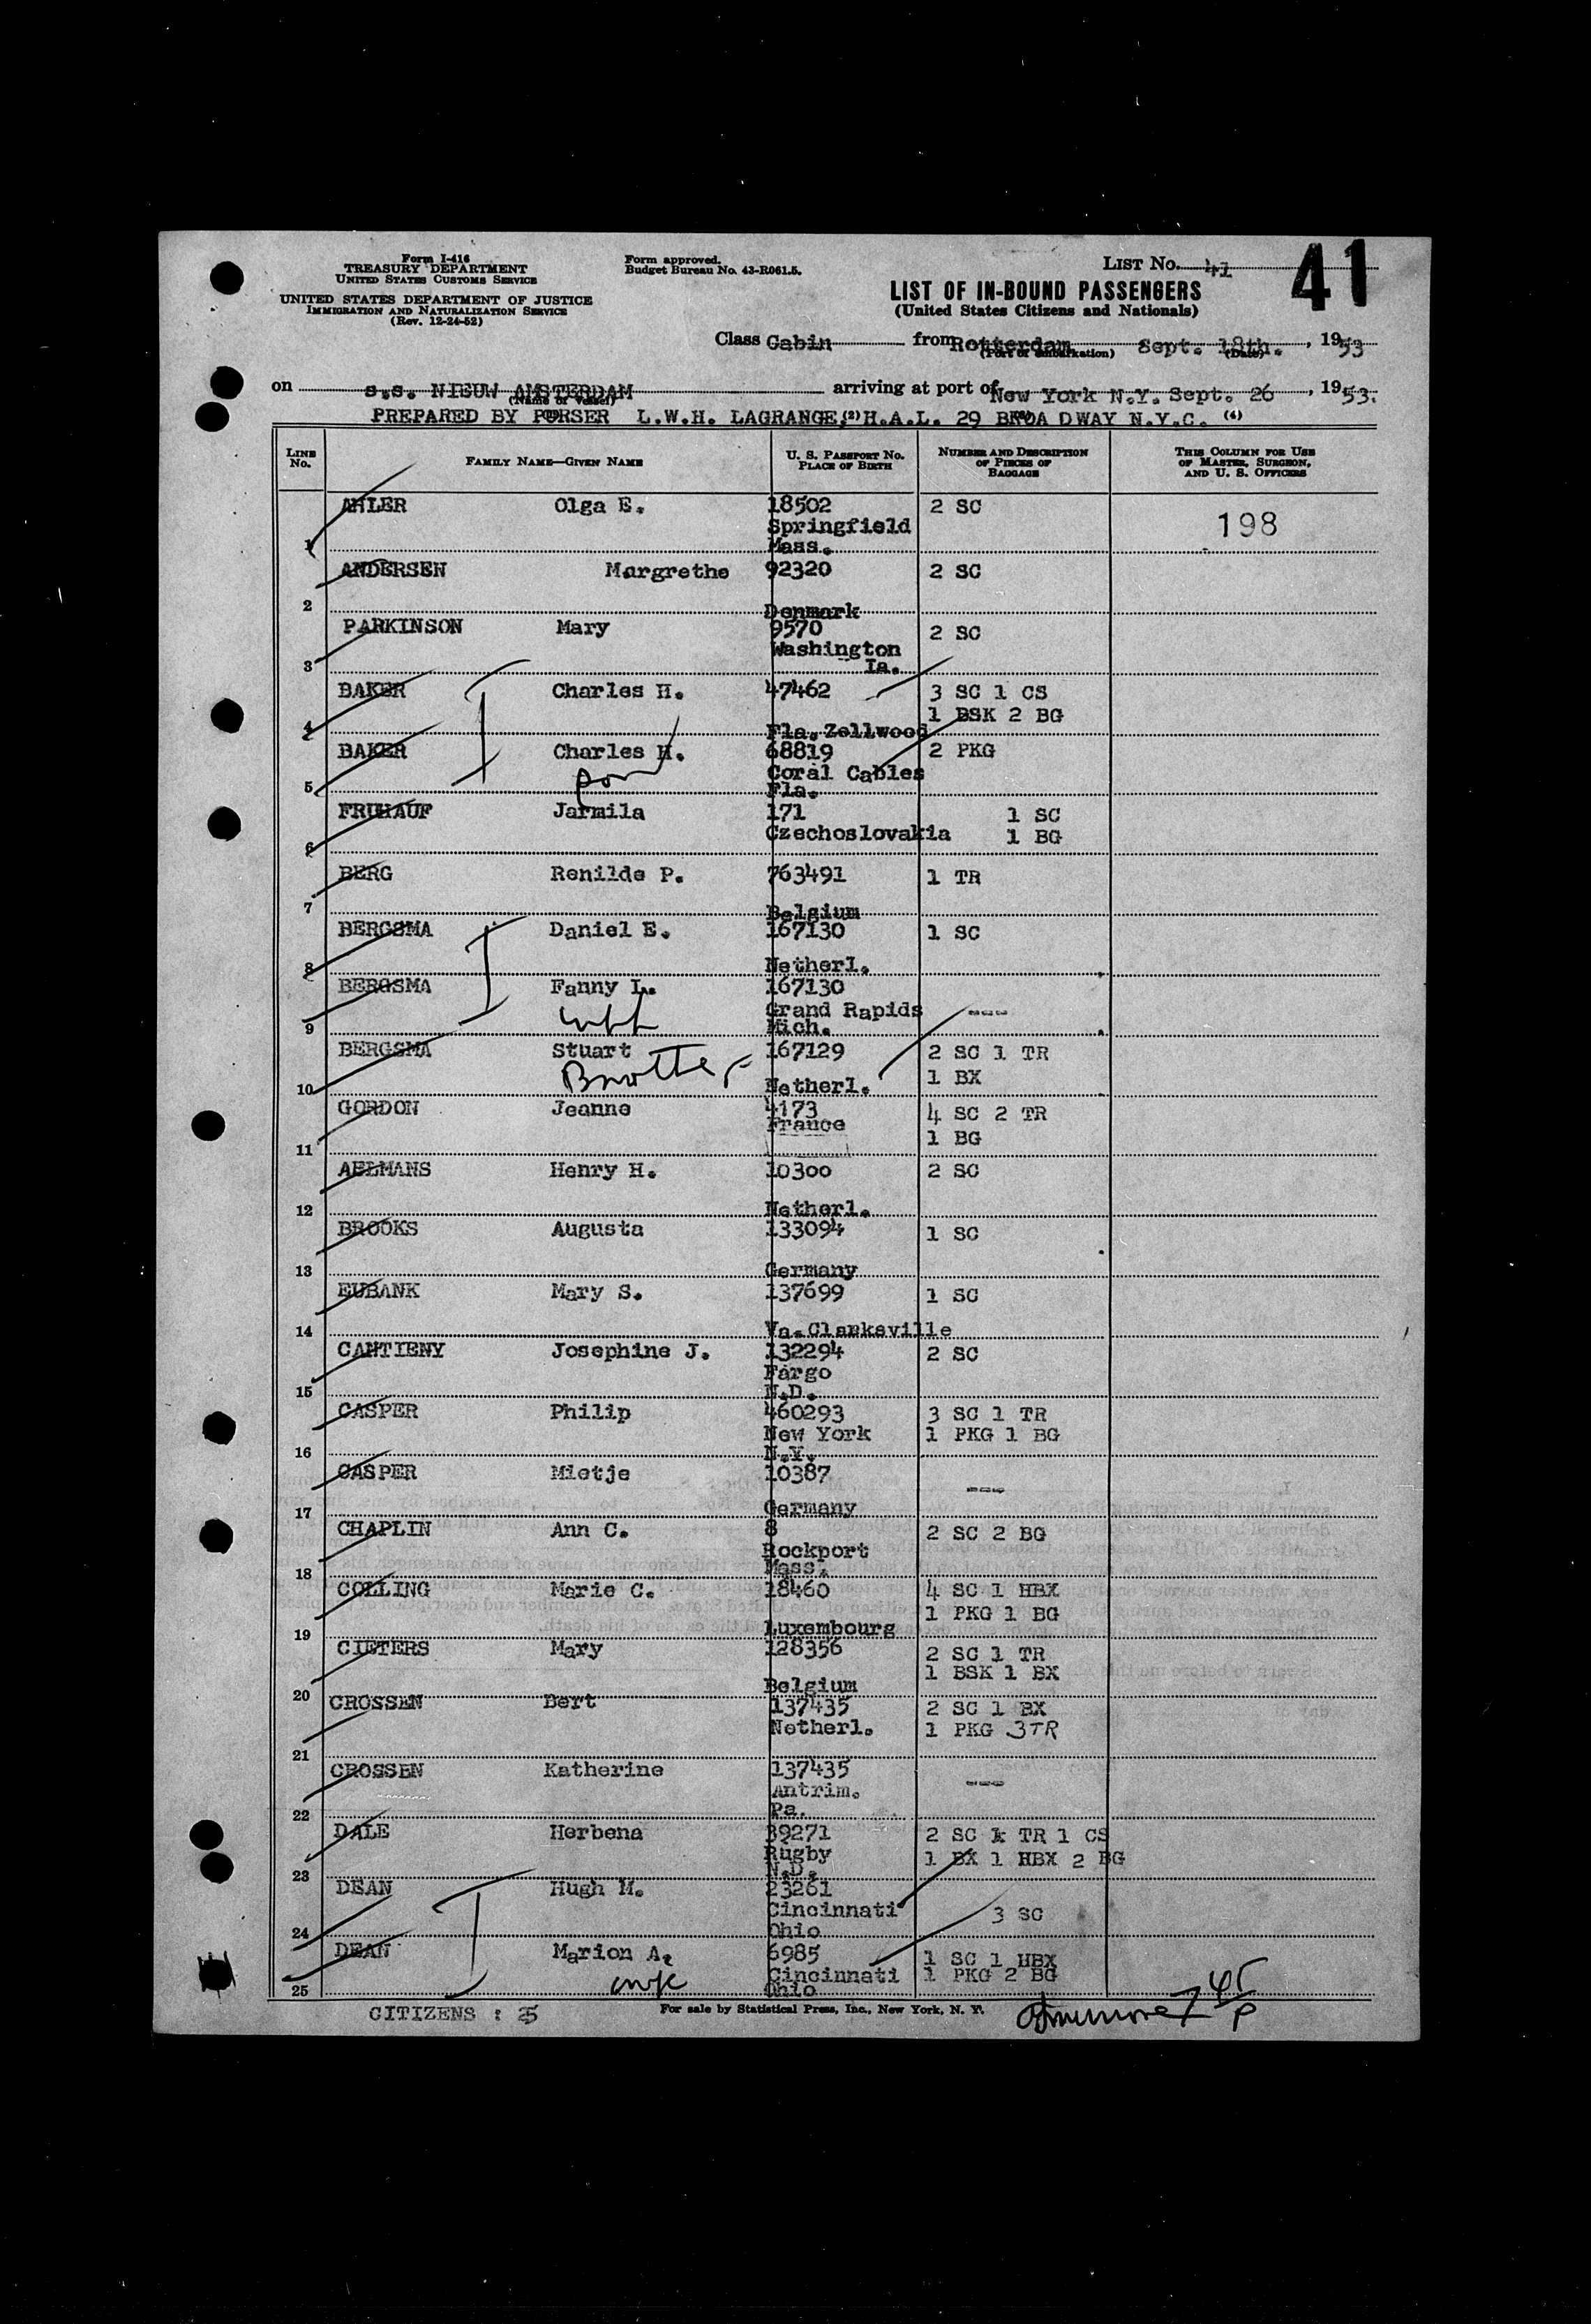 Form I-416
TREASURY DEPARTMENT
UNITED STATES CUSTOMS SERVICE
UNITED STATES DEPARTMENT OF JUSTICE
IMMIGRATION AND NATURALIZATION SERVICE
(Rev. 12-24-52)
Form approved.
Budget Bureau No. 43-R061.5.
LIST NO. 41
41
LIST OF IN-BOUND PASSENGERS
(United States Citizens and Nationals)
Class Cabin from Rotterdam Sept. 18th. , 1953
(Port of embarkation) (Date)
on s.s. NIEUW AMSTERDAM arriving at port of New York N.Y. Sept. 26 , 1953.
(Name of vessel)
PREPARED BY PURSER L.W.H. LAGRANGE, (2) H.A.L. 29 BROADWAY N.Y.C. (4)
LINE No. FAMILY NAME—GIVEN NAME U. S. PASSPORT NO. PLACE OF BIRTH NUMBER AND DESCRIPTION OF PIECES OF BAGGAGE THIS COLUMN FOR USE OF MASTER, SURGEON, AND U. S. OFFICERS
AHLER Olga E. 18502 2 SC
Springfield 198
1 Mass.
ANDERSEN Margrethe 92320 2 SC
2 Denmark
PARKINSON Mary 9570 2 SC
Washington
3 Ia.
BAKER Charles H. 47462 3 SC 1 CS
1 BSK 2 BG
4 Fla. Zellwood
BAKER Charles H. 68819 2 PKG
Coral Cables
5 Fla.
FRUHAUF Jarmila 171 1 SC
Czechoslovakia 1 BG
6
BERG Renilde P. 763491 1 TR
7 Belgium
BERGSMA Daniel E. 167130 1 SC
8 Netherl.
BERGSMA Fanny L. 167130
Grand Rapids ---
9 Mich.
BERGSMA Stuart 167129 2 SC 1 TR
Brother 1 BX
10 Netherl.
GORDON Jeanne 4173 4 SC 2 TR
France 1 BG
11
AELMANS Henry H. 10300 2 SC
12 Netherl.
BROOKS Augusta 133094 1 SC
13 Germany
EUBANK Mary S. 137699 1 SC
14 Va. Clarksville
CANTIENY Josephine J. 132294 2 SC
Fargo
15 N.D.
CASPER Philip 460293 3 SC 1 TR
New York 1 PKG 1 BG
16 N.Y.
CASPER Mietje 10387
---
17 Germany
CHAPLIN Ann C. 8 2 SC 2 BG
Rockport
18 Mass.
COLLING Marie C. 18460 4 SC 1 HBX
1 PKG 1 BG
19 Luxembourg
CIETERS Mary 128356 2 SC 1 TR
1 BSK 1 BX
20 Belgium
CROSSEN Bert 137435 2 SC 1 BX
Netherl. 1 PKG 3TR
21
CROSSEN Katherine 137435
Antrim. ---
22 Pa.
DALE Herbena 39271 2 SC 1 TR 1 CS
Rugby 1 BX 1 HBX 2 BG
23 N.D.
DEAN Hugh M. 23261
Cincinnati 3 SC
24 Ohio
DEAN Marion A. 6985 1 SC 1 HBX
Cincinnati 1 PKG 2 BG
25 Ohio
CITIZENS : 25
For sale by Statistical Press, Inc., New York, N. Y.